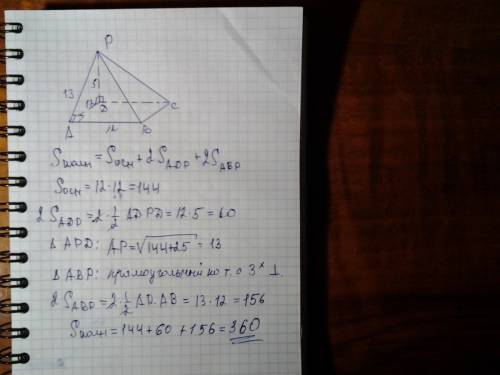 P
13
5
D
C
A
12
B
Sполн = Sосн + 2S_ADP + 2S_ABP
Sосн = 12·12 = 144
2S_ADP = 2·1/2 AD·PD = 12·5 = 60
Δ APD: AP = √144+25 = 13
Δ ABP: прямоугольный по т. о 3ˣ ⊥.
2S_ABP = 2·1/2 AP·AB = 13·12 = 156
Sполн = 144 + 60 + 156 = 360